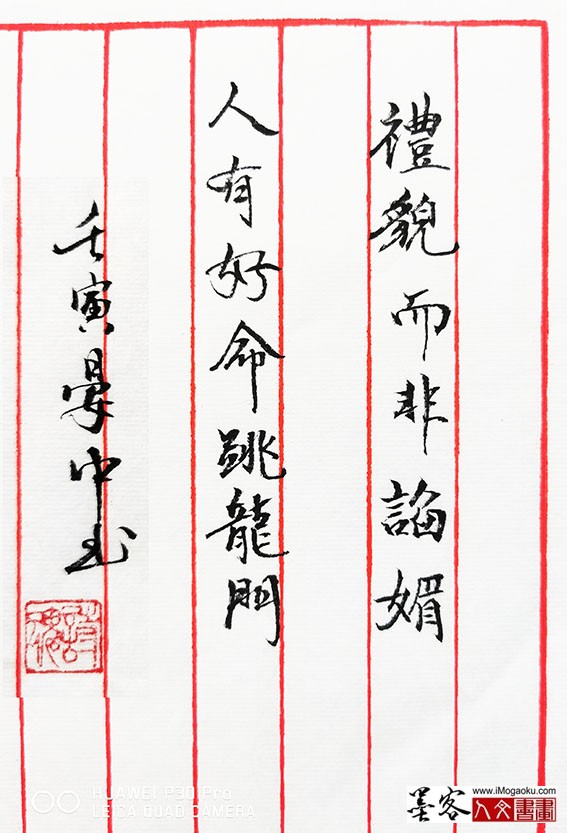 禮貌而非諂媚
人有好命跳龍門
壬寅晏中书
HUAWEI P30 Pro
LEICA QUAD CAMERA
www.iMogaoku.com
墨客人文書畫